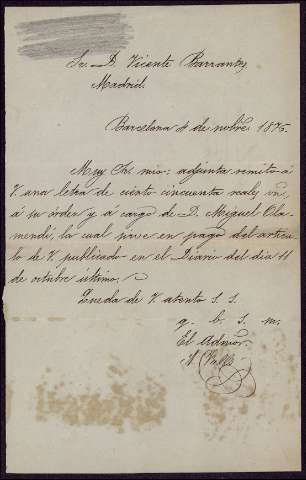 Sr. D. Vicente Barrantes
Madrid.
Barcelona 4 de nobre. 1875.
Muy Sr. mio: adjunta remito á
V. una letra de ciento cincuenta reales vn.,
á su órden y á cargo de D. Miguel Ola-
mendi, la cual sirve en pago del artícu-
lo de V. publicado en el Diario del dia 11
de octubre último.
Queda de V. atento S. S.
q. b. s. m.
El Admor.